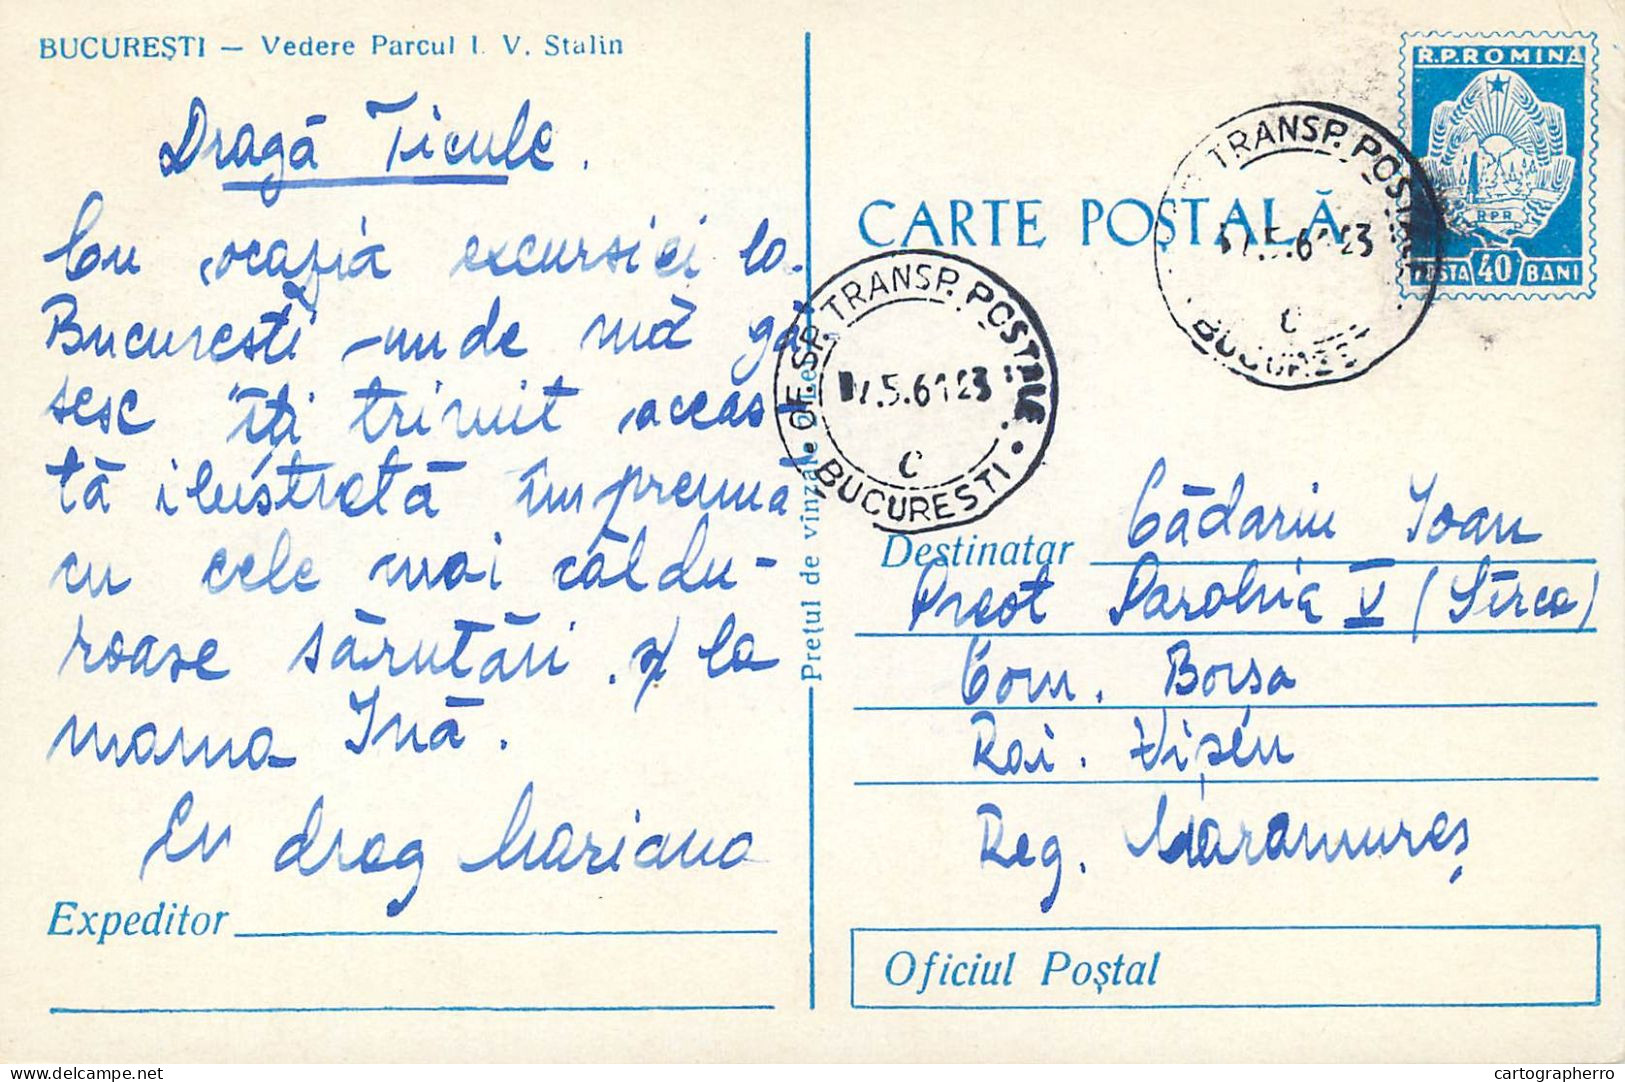 BUCUREȘTI — Vedere Parcul I. V. Stalin
Dragă Ticule.
Cu ocazia excursiei la
București - unde mă gă
sesc îți trimit aceas
tă ilustrată împreună
cu cele mai căldu-
roase sărutări. și la
mama Ină.
Cu drag Mariana
Expeditor
Prețul de vînzare Lei
CARTE POȘTALĂ
R.P.ROMINĂ
RPR
POSTA 40 BANI
TRANSP. POSTALE
7.5.61 23
C
BUCUREȘTI
OF. SP. TRANSP. POSTALE
7.5.61 23
C
BUCUREȘTI
Destinatar Cădariu Ioan
Preot Parohia V (Sîrca)
Com. Borșa
Rai. Vișeu
Reg. Maramureș
Oficiul Poștal
delcampe.net
cartographerro